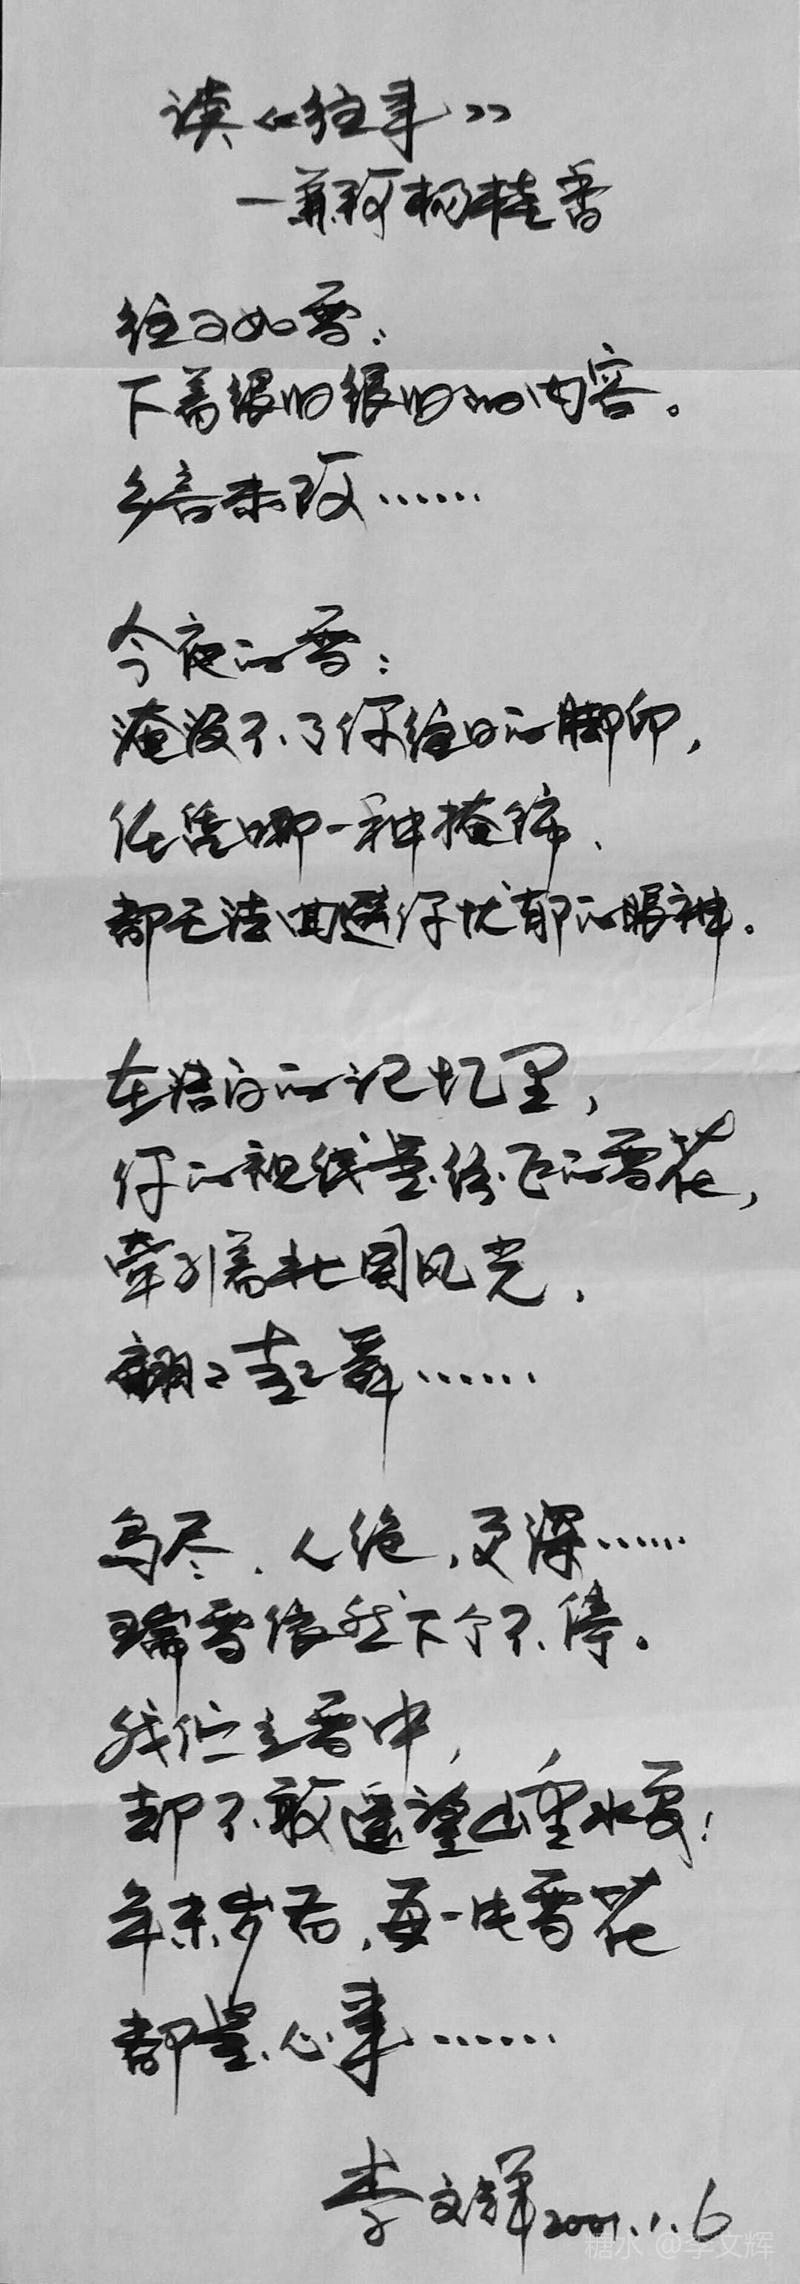 读《往事》
—兼致杨桂香
往事如雪：
下着很旧很旧的内容。
乡音未改……
今夜的雪：
淹没不了你往日的脚印，
任凭哪一种掩饰、
都无法回避你忧郁的眼神。
在洁白的记忆里，
你的视线是纷飞的雪花，
牵引着北国风光，
翩翩起舞……
鸟尽、人绝，夜深……
瑞雪依然下个不停。
我伫立雪中，
却不敢遥望山重水复；
年末岁首，每一片雪花
都是心事……
李文辉 2001.1.6
糖水 @李文辉